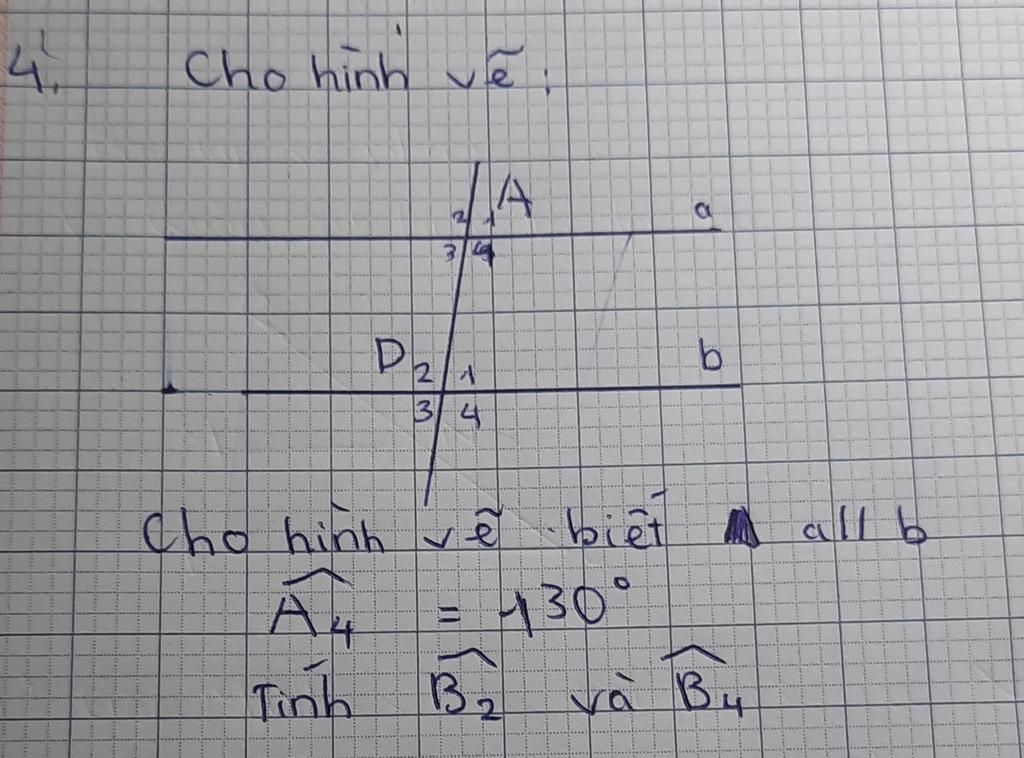 4. Cho hình vẽ:
2 1 A a
3 4
D 2 1 b
3 4
Cho hình vẽ biết a // b
A₄ = 130°
Tính B₂ và B₄